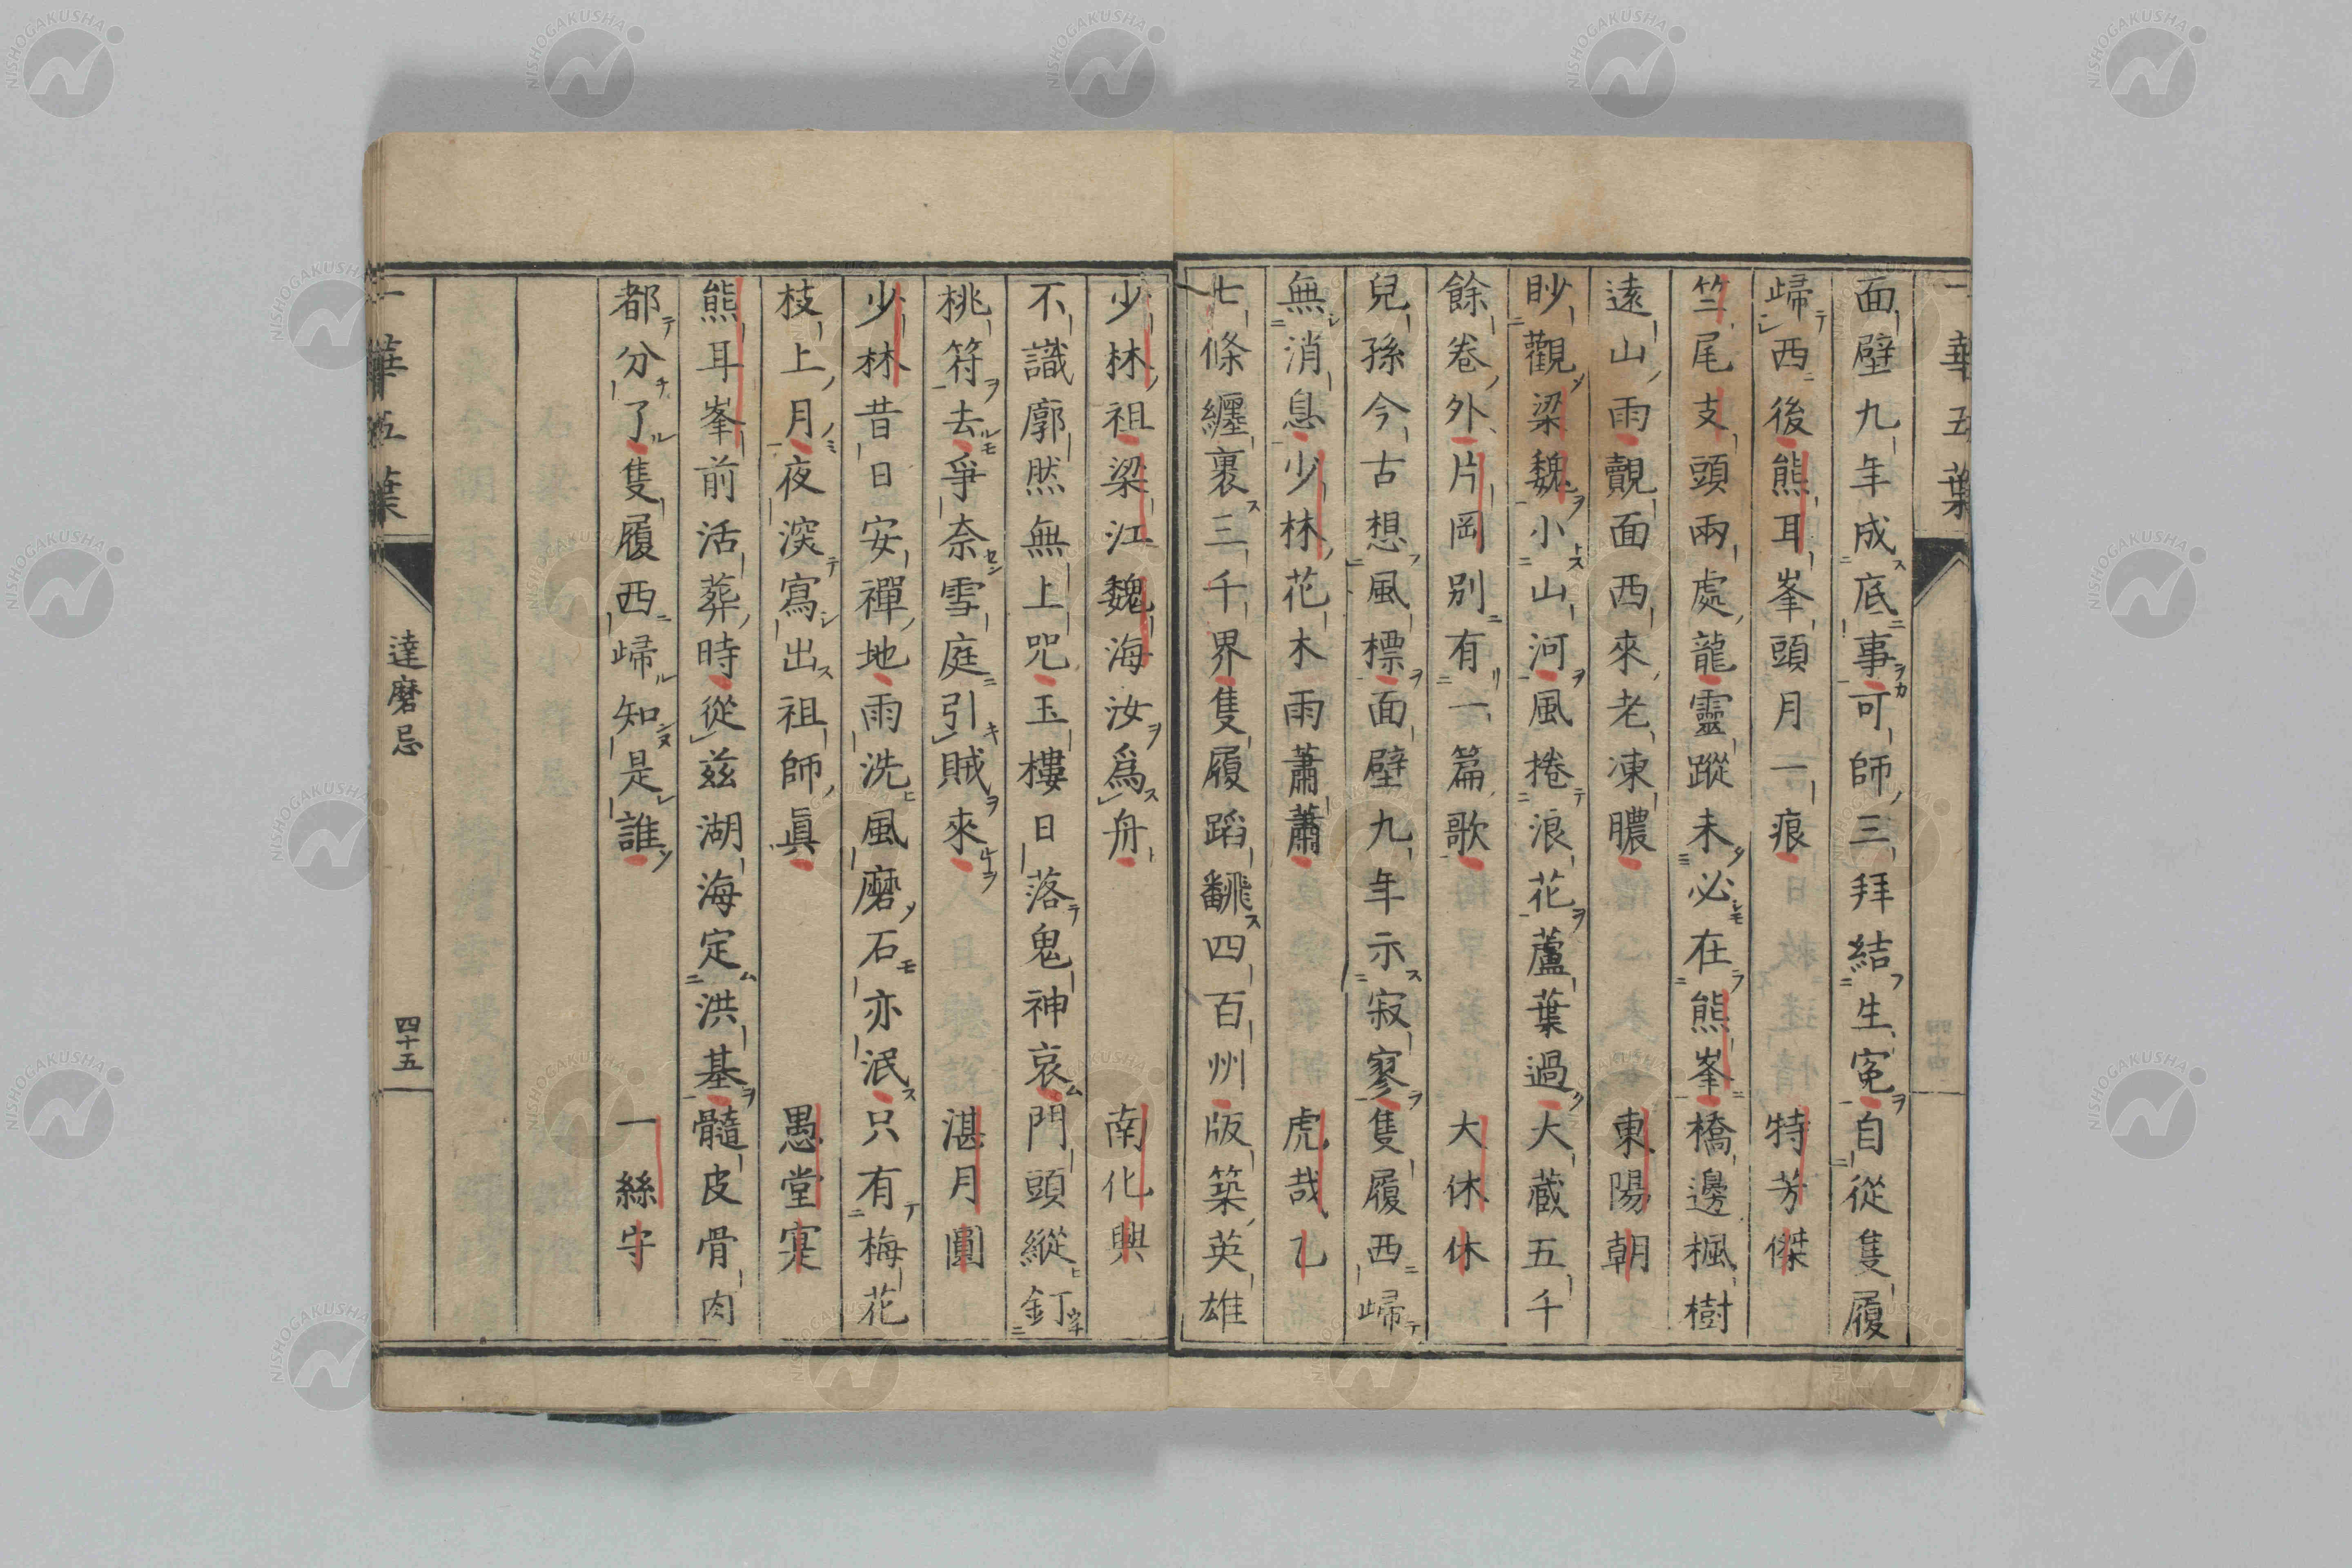 一華五葉
面壁九年成底事可師三拜結生冤自從隻履
歸西後熊耳峯頭月一痕 特芳傑
竺尾支頭兩處龍靈蹤未必在熊峯橋邊楓樹
遠山雨覿面西來老凍膿 東陽朝
眇觀梁魏小山河風捲浪花蘆葉過大藏五千
餘卷外片岡別有一篇歌 大休休
兒孫今古想風標面壁九年示寂寥隻履西歸
無消息少林花木雨蕭蕭 虎哉乙
七條纏裹三千界隻履蹈翻四百州版築英雄
少林祖梁江魏海汝爲舟 南化興
不識廓然無上咒玉樓日落鬼神哀門頭縱釘
桃符去爭奈雪庭引賊來 湛月圓
少林昔日安禪地雨洗風磨石亦泯只有梅花
枝上月夜深寫出祖師眞 愚堂寔
熊耳峯前活葬時從茲湖海定洪基髓皮骨肉
都分了隻履西歸知是誰 一絲守
一華五葉
達磨忌
四十五